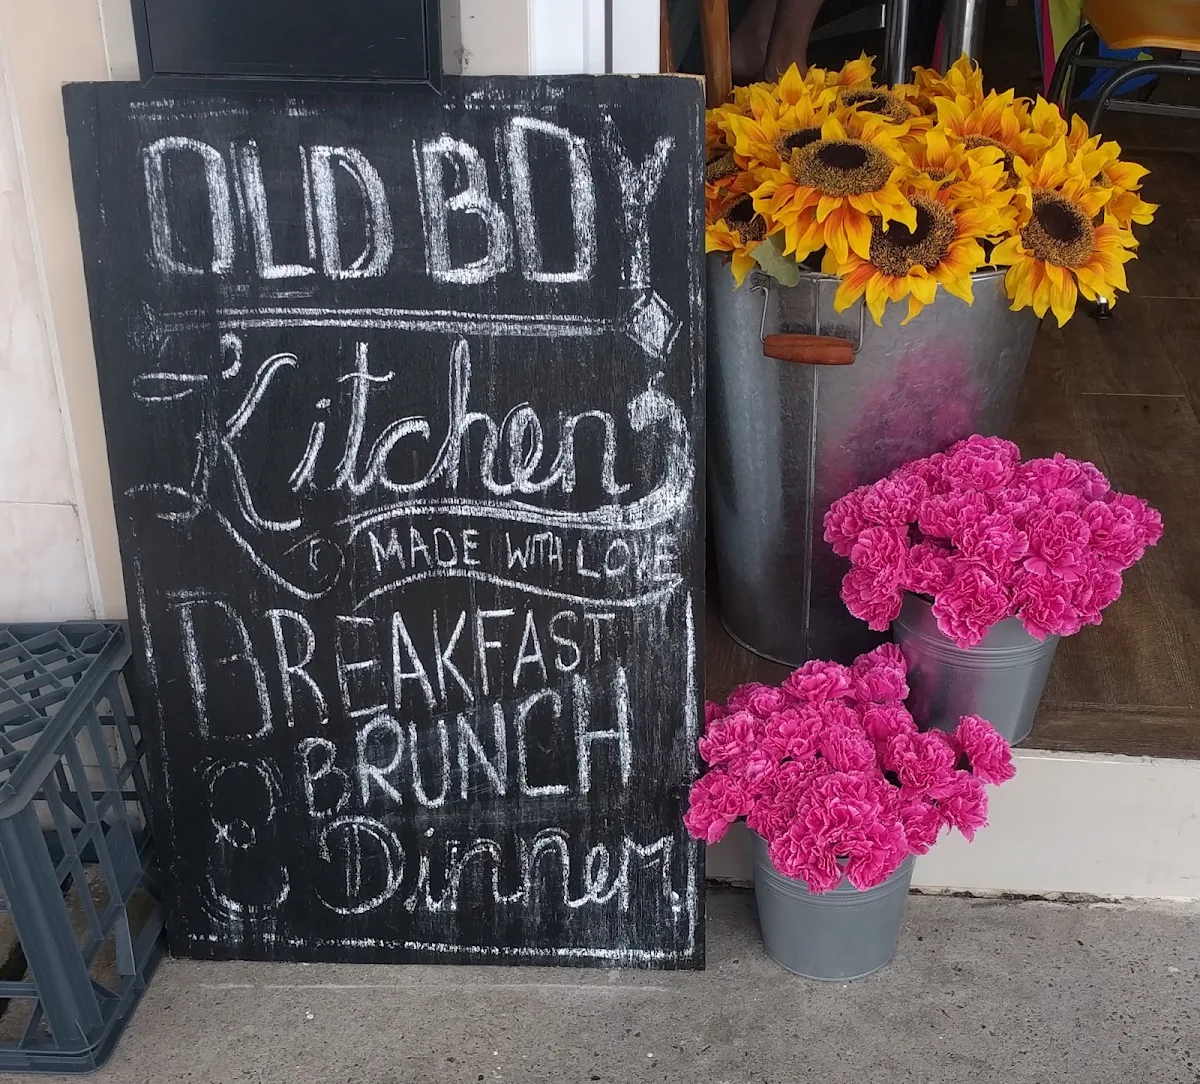 OLD BOY
Kitchen
MADE WITH LOVE
BREAKFAST
BRUNCH
& Dinner.